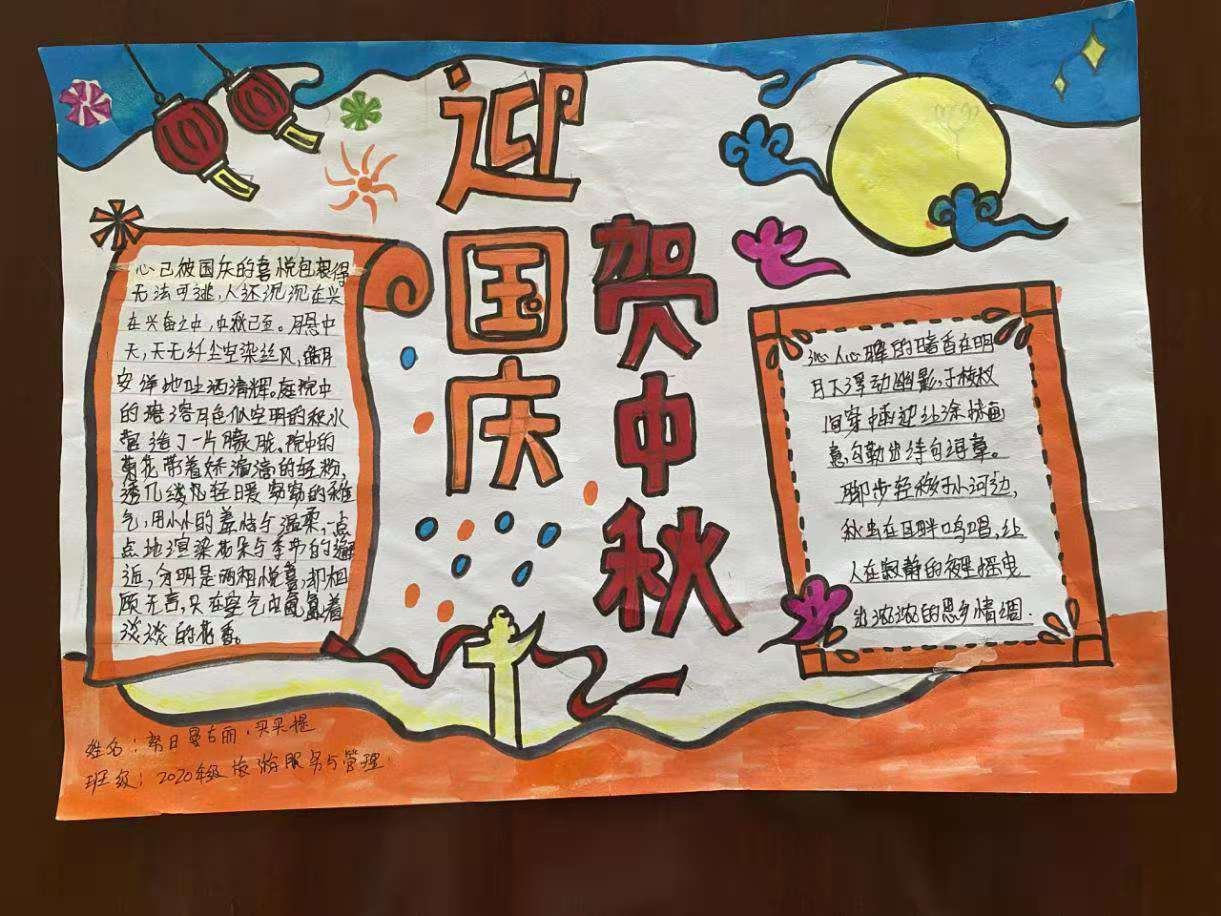 迎国庆
贺中秋
心已被国庆的喜悦包裹得
无法可逃，人还沉沉在兴
在兴奋之中，中秋已至。月悬中
天，天无纤尘空染丝风，皓月
安详地吐洒清辉。庭院中
的溶溶月色似空明的积水
营造了一片朦胧，院中的
菊花带着娇滴滴的轻粉，
透几缕忽轻忽暖 的稚
气，用小小的羞怯与温柔，一点
点地渲染花朵与季节的邂
逅，分明是两相悦喜，却相
顾无言，只在空气中氤氲着
淡淡的花香。
沁人心脾的暗香在明
月下浮动幽影，于枝杈
间穿 让涂抹画
意勾勒出诗句词章。
脚步轻移于小河边，
秋虫在耳畔鸣唱，让
人在寂静的夜里摇曳
出浓浓的思乡情调.
姓名：努日曼古丽·买买提
班级：2020年级旅游服务与管理